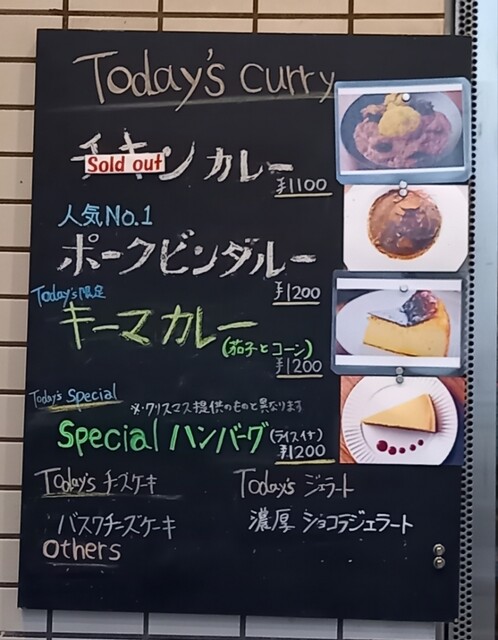 Today's curry
チキン カレー
Sold out
¥1100
人気No.1
ポークビンダルー
¥1200
Today's 限定
キーマカレー
(茄子とコーン)
¥1200
Today's Special
※クリスマス提供のものと異なります
Special ハンバーグ (ライス付)
¥1200
Today's チーズケーキ
バスクチーズケーキ
Today's ジェラート
濃厚 ショコラジェラート
Others